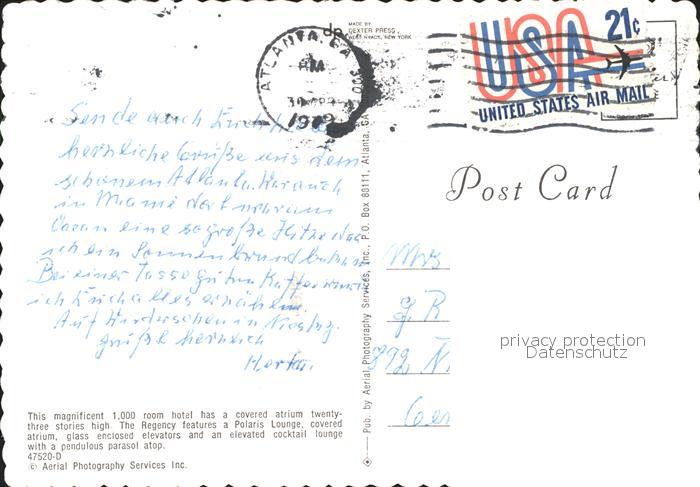 MADE BY
DEXTER PRESS
WEST NYACK, NEW YORK
dp
ATLANTA, GA
PM
30 APR
1972
USA 21¢
UNITED STATES AIR MAIL
Post Card
Sende auch Euch
herzliche Grüße aus dem
schönem Atlanta. War auch
in Miami dort war am
Ocean eine so große Hitze das
ich ein Sonnenbrand bekam
Bei einer Tasse guten Kaffee
ich Euch alles erzählen.
Auf Wiedersehen in
grüßt herzlich
Herta.
Mrs
G R
792 N
Ger
privacy protection
Datenschutz
Pub. by Aerial Photography Services, Inc., P.O. Box 88111, Atlanta, GA
This magnificent 1,000 room hotel has a covered atrium twenty-
three stories high. The Regency features a Polaris Lounge, covered
atrium, glass enclosed elevators and an elevated cocktail lounge
with a pendulous parasol atop.
47520-D
© Aerial Photography Services Inc.